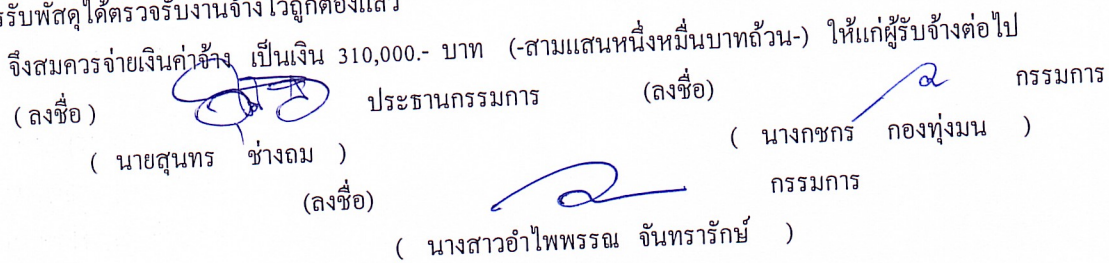 รรับพัสดุได้ตรวจรับงานจ้างไว้ถูกต้องแล้ว
จึงสมควรจ่ายเงินค่าจ้าง เป็นเงิน 310,000.- บาท (-สามแสนหนึ่งหมื่นบาทถ้วน-) ให้แก่ผู้รับจ้างต่อไป
(ลงชื่อ) ประธานกรรมการ (ลงชื่อ) กรรมการ
( นายสุนทร ช่างถม ) ( นางกชกร กองทุ่งมน )
(ลงชื่อ) กรรมการ
( นางสาวอำไพพรรณ จันทรารักษ์ )